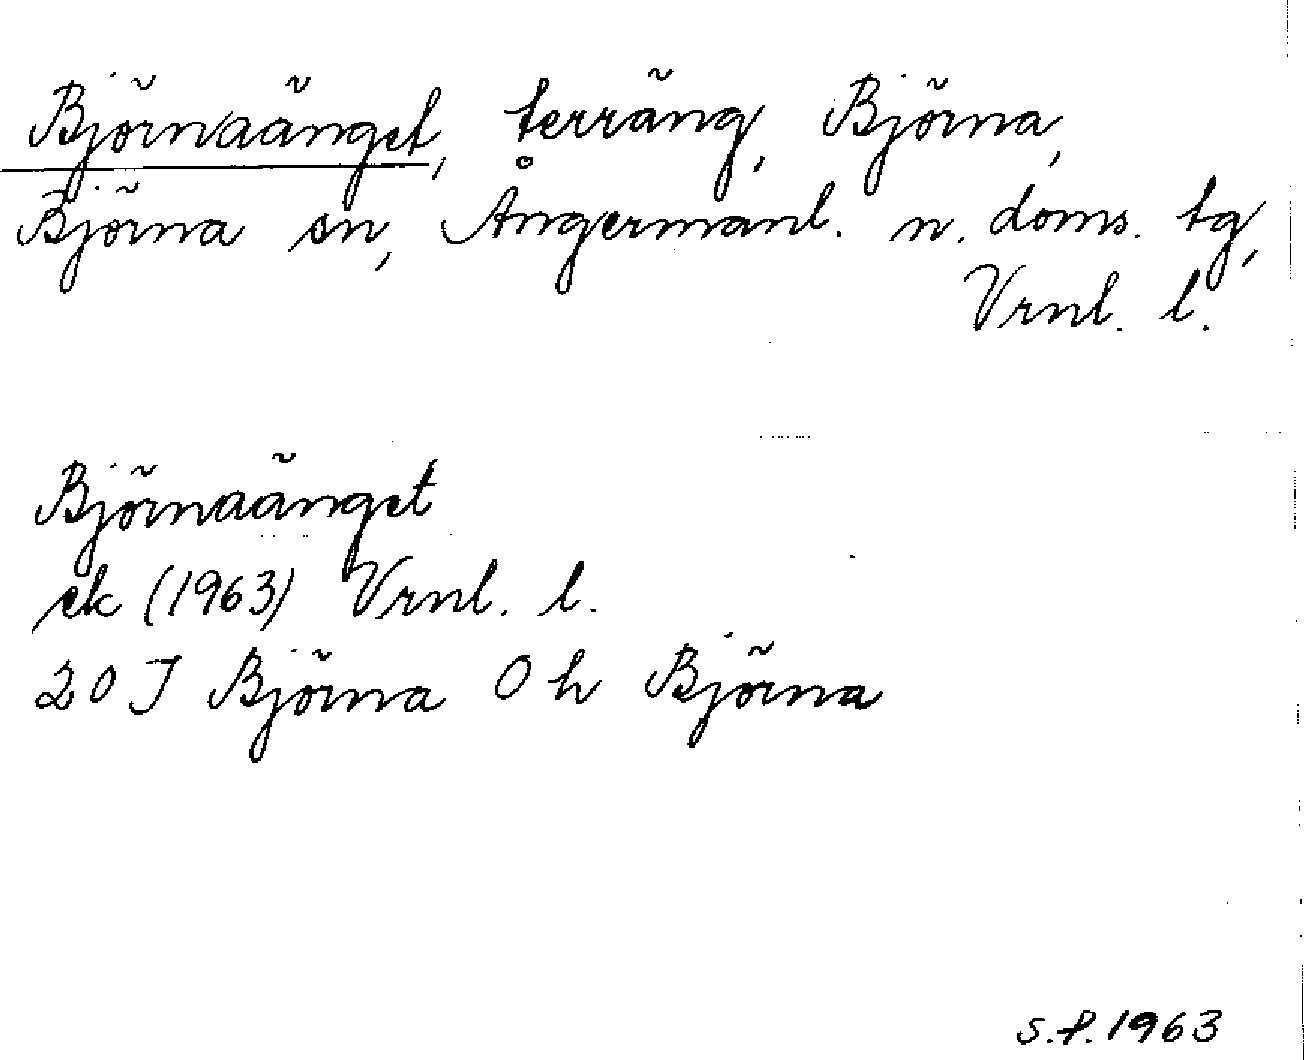 Björnaänget, terräng, Björna,
Björna sn, Ångermanl. n. doms. tg,
Vrnl. l.
Björnaänget
ek (1963) Vrnl. l.
20 J Björna 0 h Björna
s.f. 1963